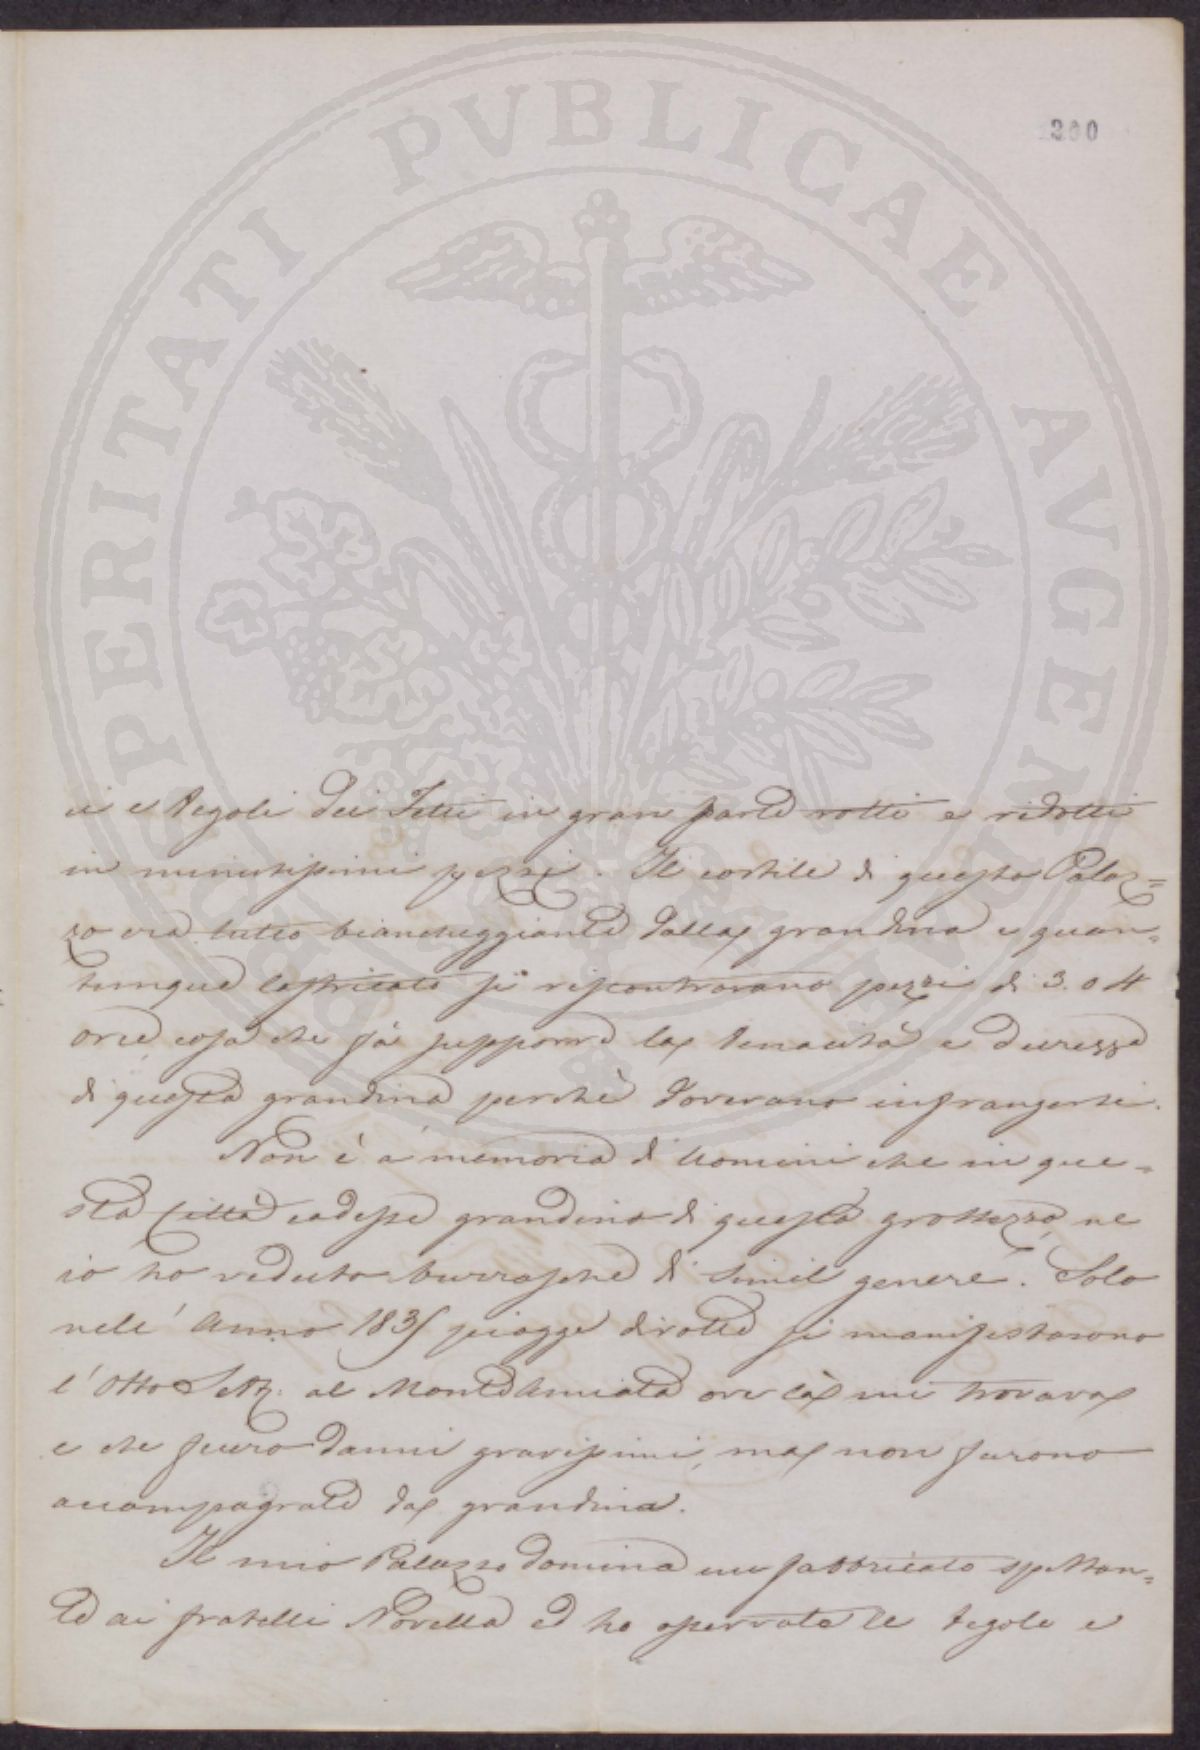 PROSPERITATI PVBLICAE AVGENDAE
300
ci e tegoli dei Tetti in gran parte rotti e ridotti
in minutissimi pezzi. Il cortile di questo Palaz=
zo era tutto biancheggiante dalla grandina e quan=
tunque lastricato si riscontravano pezzi di 3. o 4
oncie, cosa che fà supporre la tenacità e durezza
di questa grandina perchè dovevano infrangersi.
Non è a memoria d'uomini che in que=
sta Città cadesse grandina di questa grossezza, ne
io ho veduto burrasche di simil genere. Solo
nell'Anno 183 piogge dirotte si manifestarono
l'Otto al Monte Amiata ove là mi trovava
e che fecero danni gravissimi, ma non furono
accompagnate da grandina.
Il mio Palazzo domina un fabbricato spettan=
te ai fratelli Novella ed ho osservato le tegole e